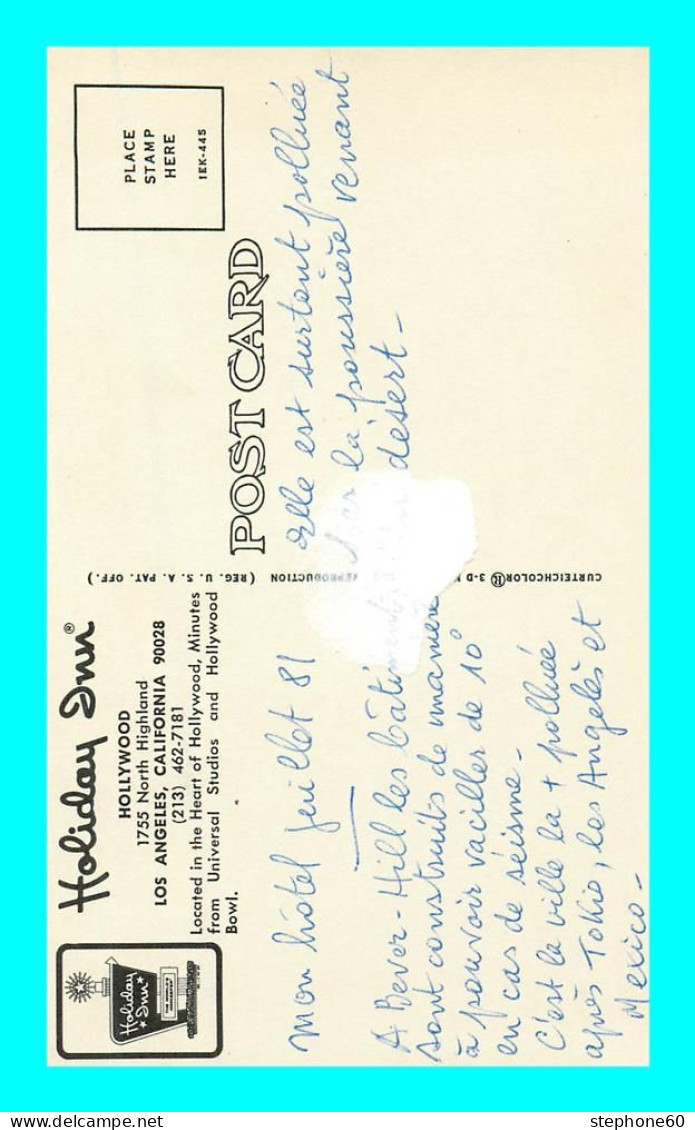 Holiday Inn®
HOLLYWOOD
1755 North Highland
LOS ANGELES, CALIFORNIA 90028
(213) 462-7181
Located in the Heart of Hollywood, Minutes
from Universal Studios and Hollywood
Bowl.
Holiday
Inn
mon hôtel juillet 81
A Bever-Hill les bâtiments
sont construits de manière
à pouvoir vaciller de 10°
en cas de séisme -
C'est la ville la + polluée
après Tokio, los Angelès et
Mexico -
CURTEICHCOLOR® 3-D REPRODUCTION (REG. U.S.A. PAT. OFF.)
POST CARD
PLACE
STAMP
HERE
1EK-445
elle est surtout polluée
la poussière venant
désert -
stephone60